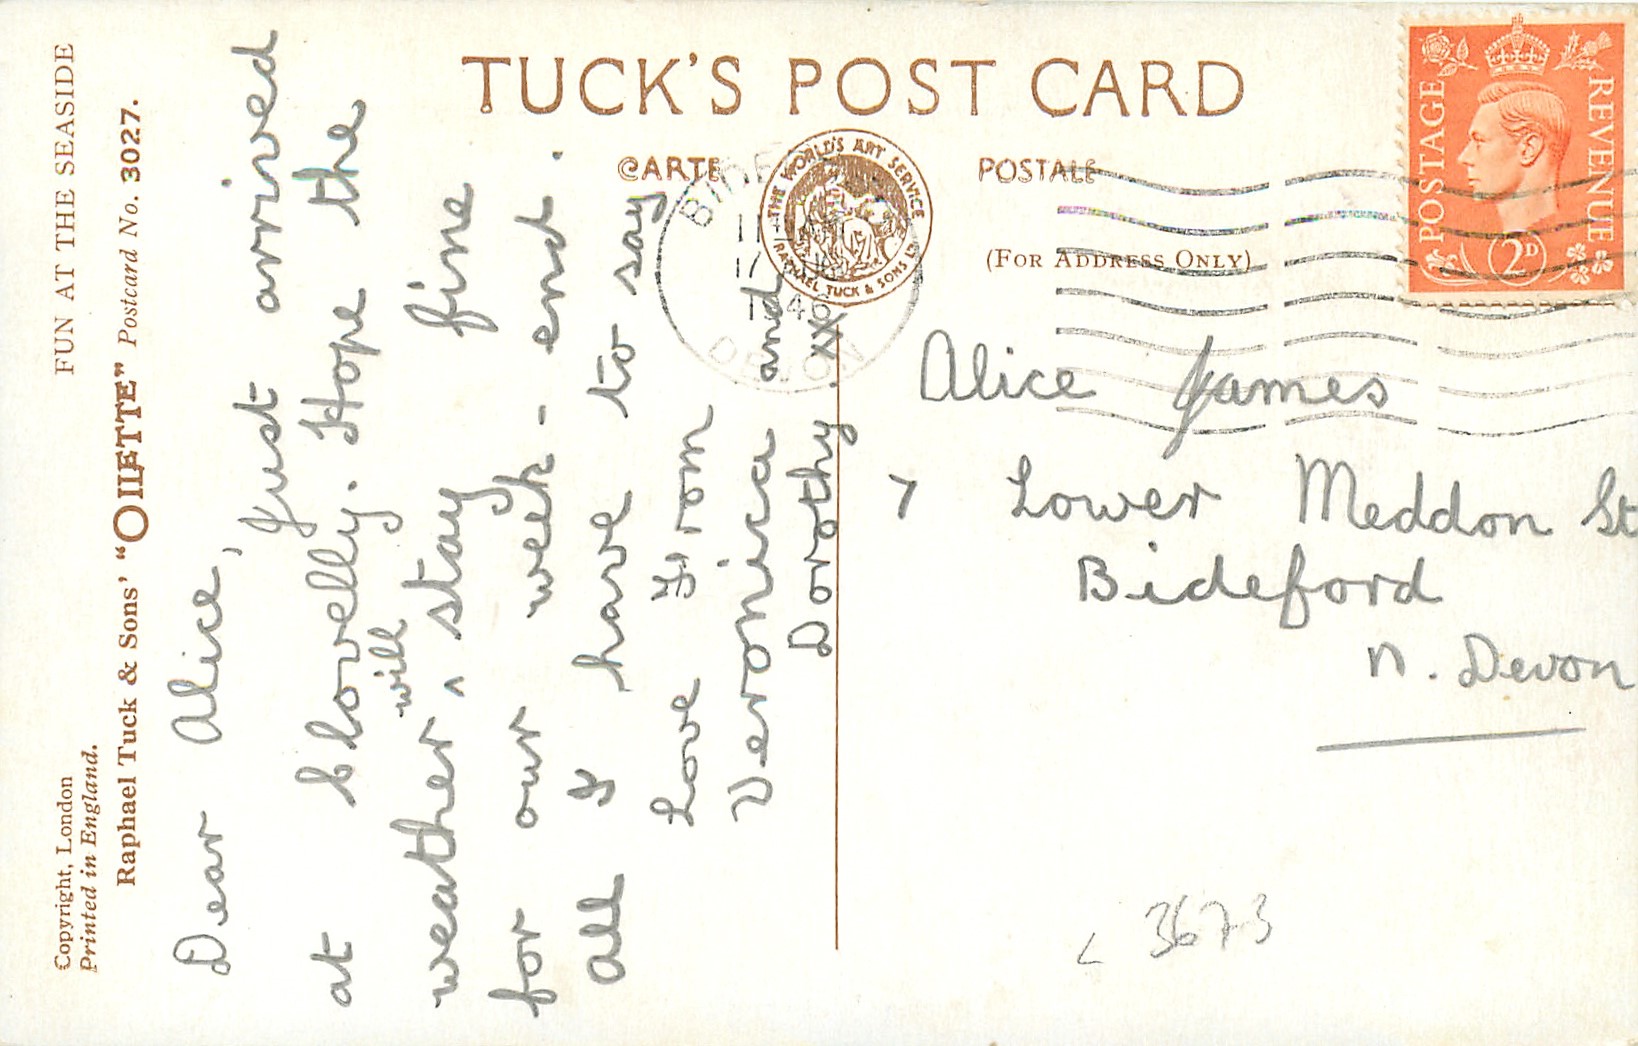 FUN AT THE SEASIDE
Copyright, London
Printed in England.
Raphael Tuck & Sons' "OILETTE" Postcard No. 3027.
TUCK'S POST CARD
CARTE POSTALE
(FOR ADDRESS ONLY)
THE WORLD'S ART SERVICE
RAPHAEL TUCK & SONS LTD
POSTAGE REVENUE
2D
DEVON
Dear Alice, Just arrived
at Clovelly. Hope the
weather ^ will stay fine
for our week-end.
All I have to say
Love From
Veronica and
Dorothy. xx
Alice James
7 Lower Meddon St
Bideford
N. Devon
3673